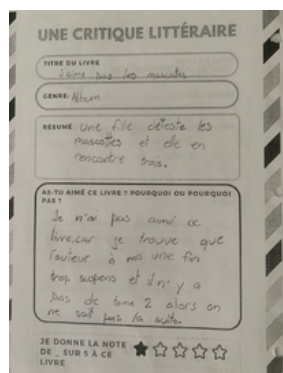 UNE CRITIQUE LITTÉRAIRE
TITRE DU LIVRE
J'aime pas les mascottes
GENRE: Album
RÉSUMÉ une fille déteste les
mascottes et elle en
rencontre trois.
AS-TU AIMÉ CE LIVRE ? POURQUOI OU POURQUOI
PAS ?
Je n'ai pas aimé ce
livre,car je trouve que
l'auteur à mis une fin
trop suspens et il n'y a
pas de tome 2 alors on
ne sait pas la suite.
JE DONNE LA NOTE
DE _ SUR 5 À CE
LIVRE